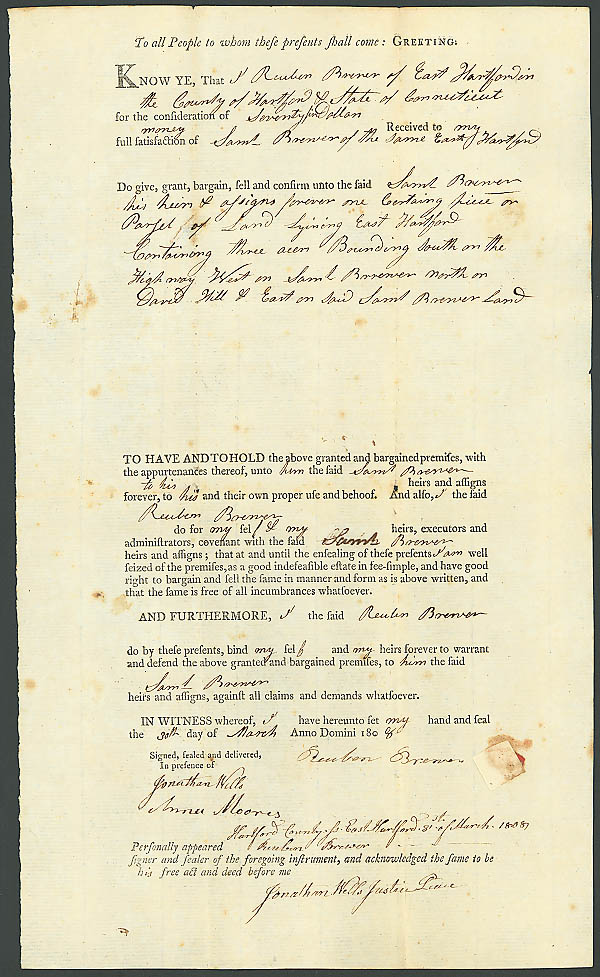 To all People to whom theſe preſents ſhall come: GREETING.
KNOW YE, That I Reuben Brewer of East Hartford in
the County of Hartford & State of Connecticut
for the conſideration of Seventy five Dollars
money Received to my
full ſatisfaction of Saml Brewer of the same East Hartford
Do give, grant, bargain, ſell and confirm unto the ſaid Saml Brewer
his heirs & assigns forever one Certaing piece or
Parsel of Land Lyining East Hartford
Containing three acers Bounding South on the
High way West on Saml Brrewer North on
David Hill & East on said Saml Brewer Land
TO HAVE AND TO HOLD the above granted and bargained premiſes, with
the appurtenances thereof, unto him the ſaid Saml Brewer
to his heirs and aſſigns
forever, to his and their own proper uſe and behoof. And alſo, I the ſaid
Reuben Brewer
do for my ſelf & my heirs, executors and
adminiſtrators, covenant with the ſaid Saml Brewer
heirs and aſſigns; that at and until the enſealing of theſe preſents I am well
ſeized of the premiſes, as a good indefeaſible eſtate in fee-ſimple, and have good
right to bargain and ſell the ſame in manner and form as is above written, and
that the ſame is free of all incumbrances whatſoever.
AND FURTHERMORE, I the ſaid Reuben Brewer
do by theſe preſents, bind my ſelf and my heirs forever to warrant
and defend the above granted and bargained premiſes, to him the ſaid
Saml Brewer
heirs and aſſigns, againſt all claims and demands whatſoever.
IN WITNESS whereof, I have hereunto ſet my hand and ſeal
the 30th day of March Anno Domini 1808
Signed, ſealed and delivered,
In preſence of
Reuben Brewer
Jonathan Wells
Anna Moores
Hartford County ss. East Hartford 31st of March 1808
Perſonally appeared Reuben Brewer
ſigner and ſealer of the foregoing inſtrument, and acknowledged the ſame to be
his free act and deed before me
Jonathan Wells Justice Peace